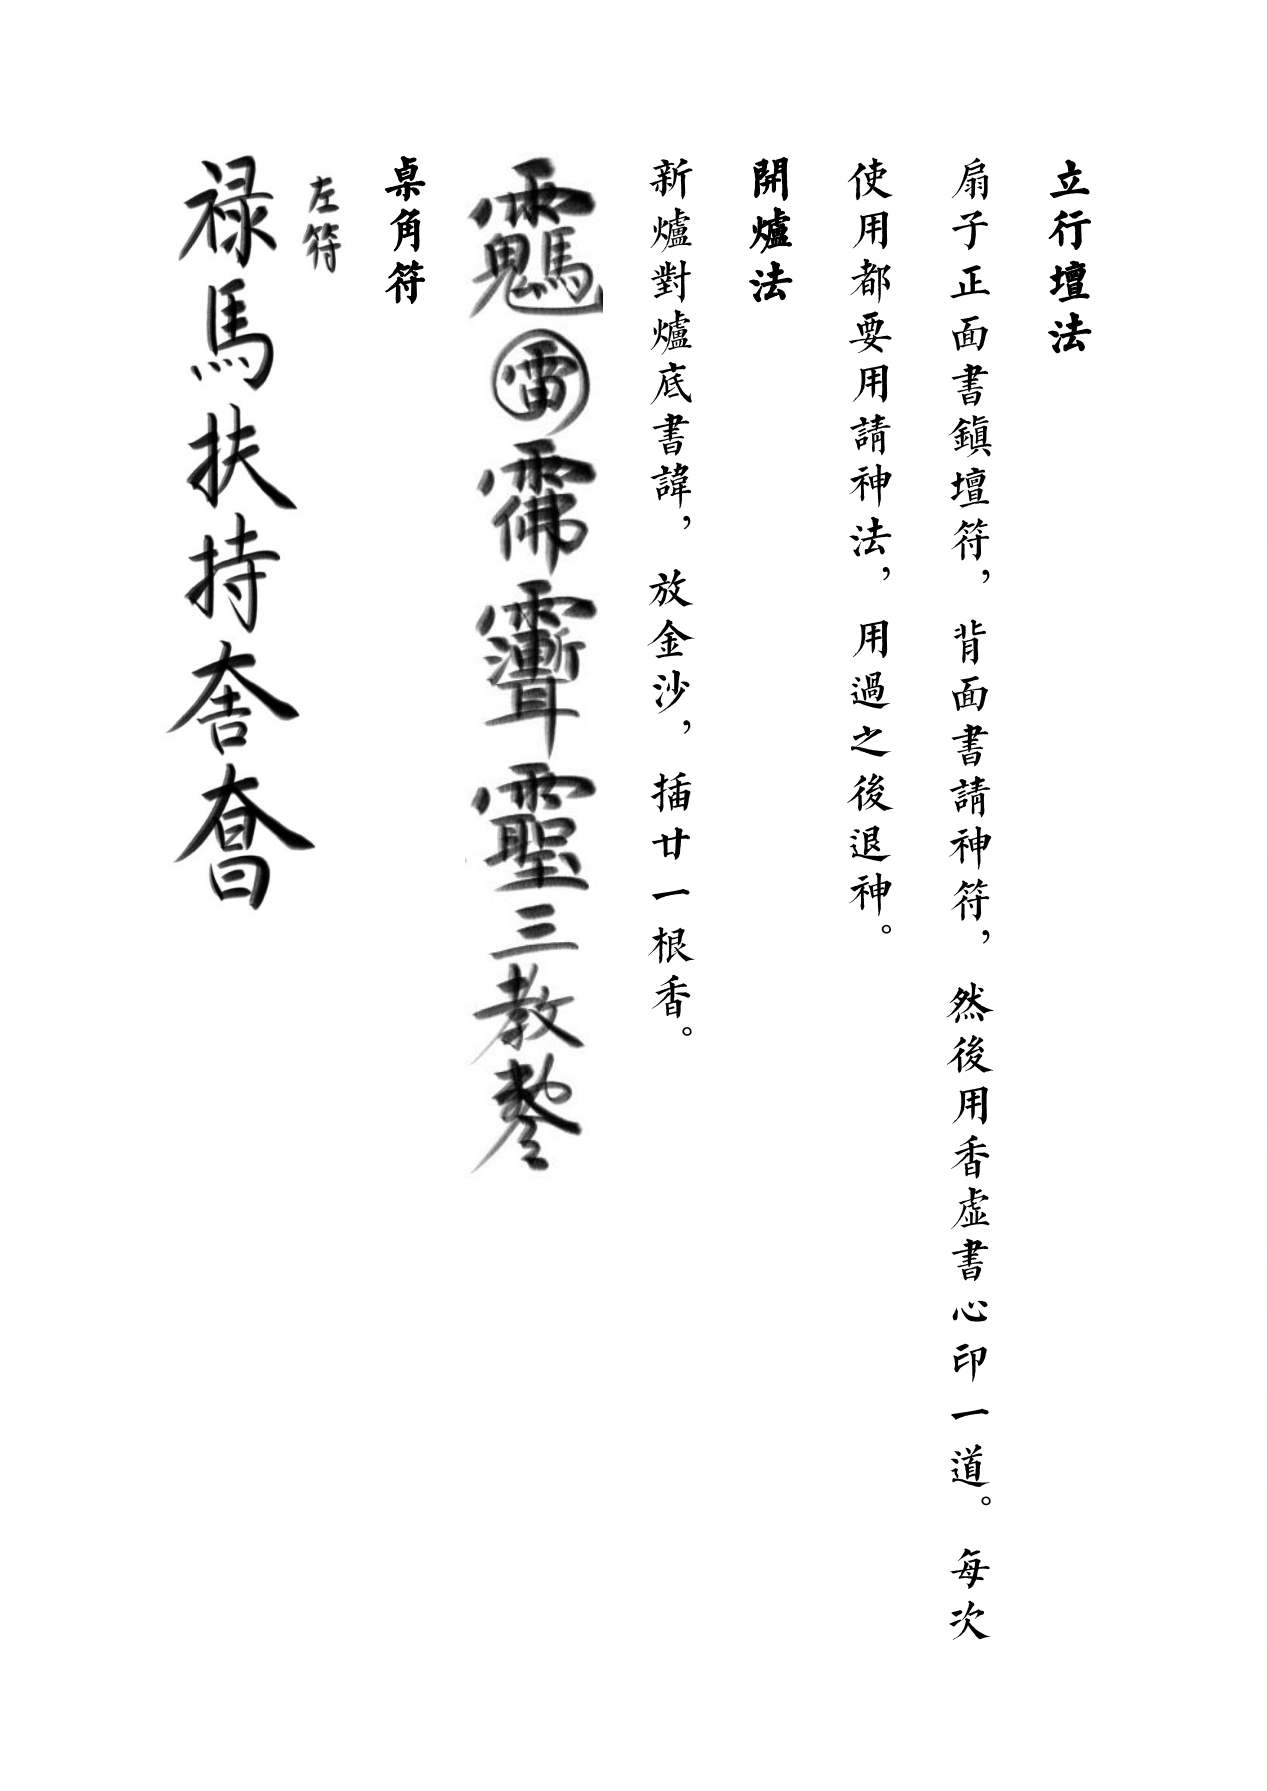 立行壇法
扇子正面書鎮壇符，背面書請神符，然後用香虛書心印一道。每次
使用都要用請神法，用過之後退神。
開爐法
新爐對爐底書諱，放金沙，插廿一根香。
三教
桌角符
左符
禄馬扶持